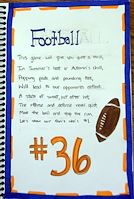 Football
This game will give you quite a thrill,
In Summer's heat or Autumn's chill,
Popping pads and pounding feet,
We'll lead to our opponents defeat.
A state of sweat, out after hot,
The offense and defense never quit,
Move the ball and stop the run,
Let's show our that's #1
#36